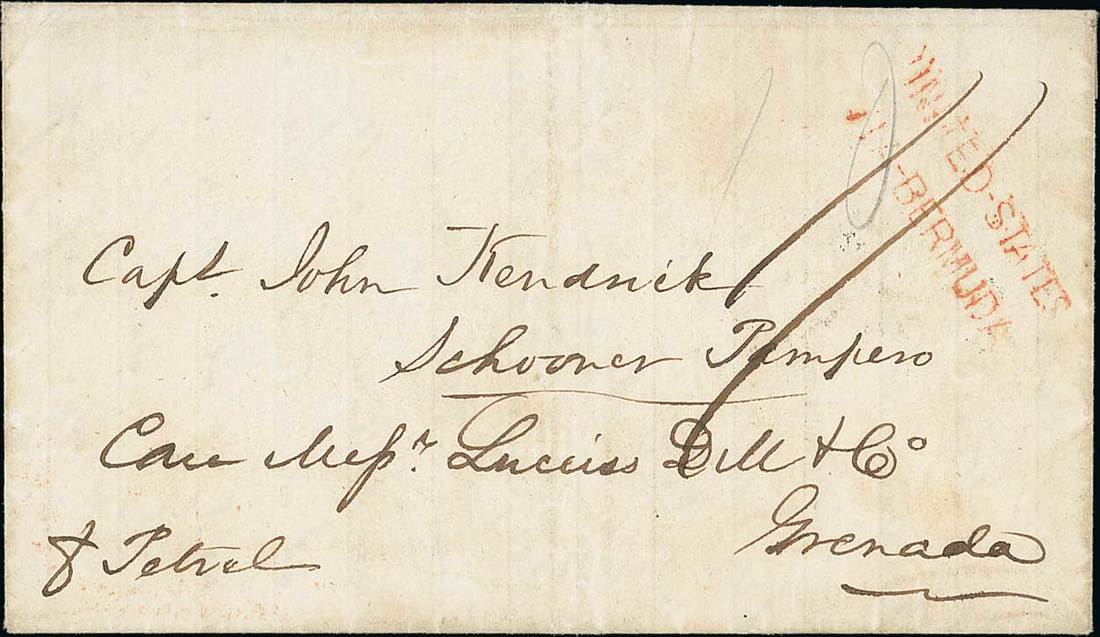 UNITED-STATES
-BERMUDA
Capt. John Kendrick
Schooner Pampero
Care Messrs. Lucius Dill & Co
Grenada
Petrel